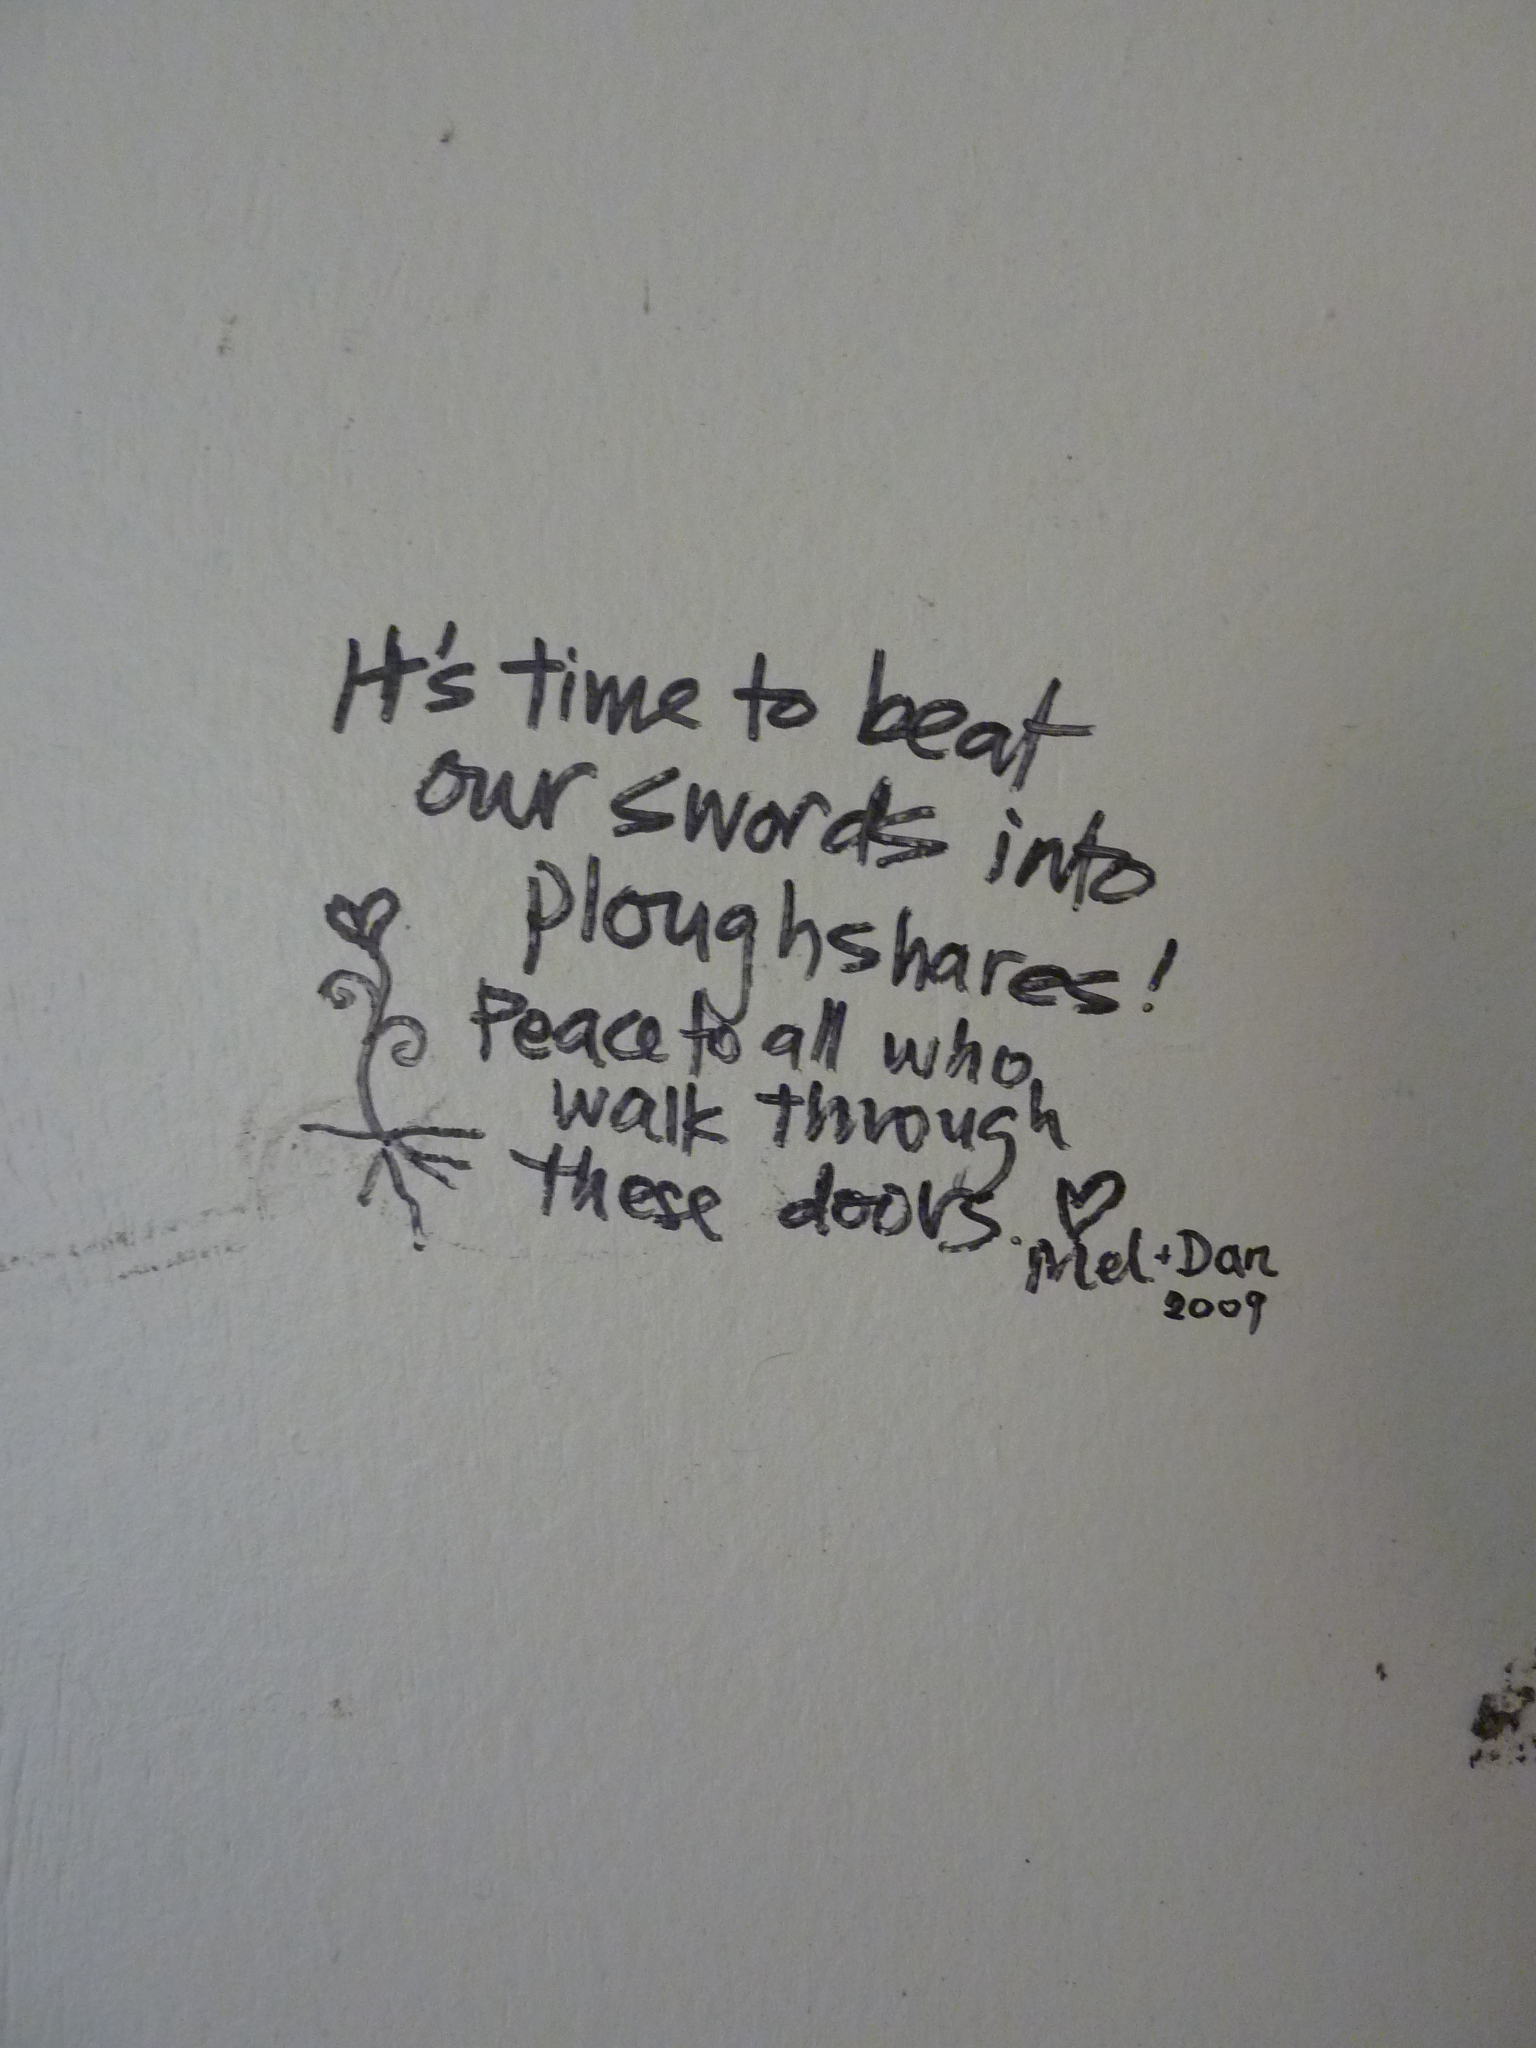 It's time to beat
our swords into
ploughshares!
Peace to all who
walk through
these doors. ♡
Mel + Dan
2009